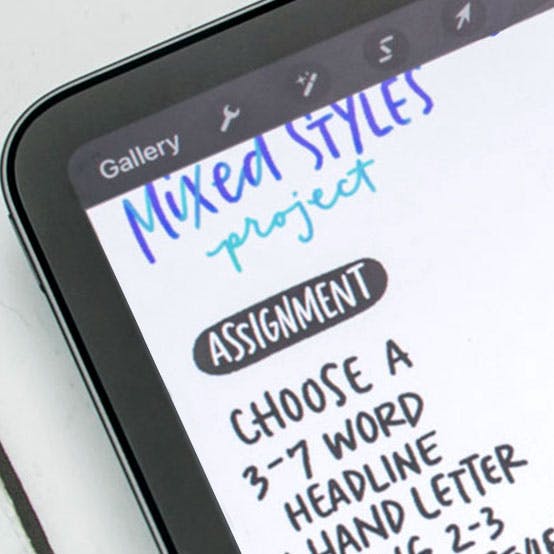 Gallery
Mixed STYLES
project
ASSIGNMENT
CHOOSE A
3-7 WORD
HEADLINE
HAND LETTER
2-3